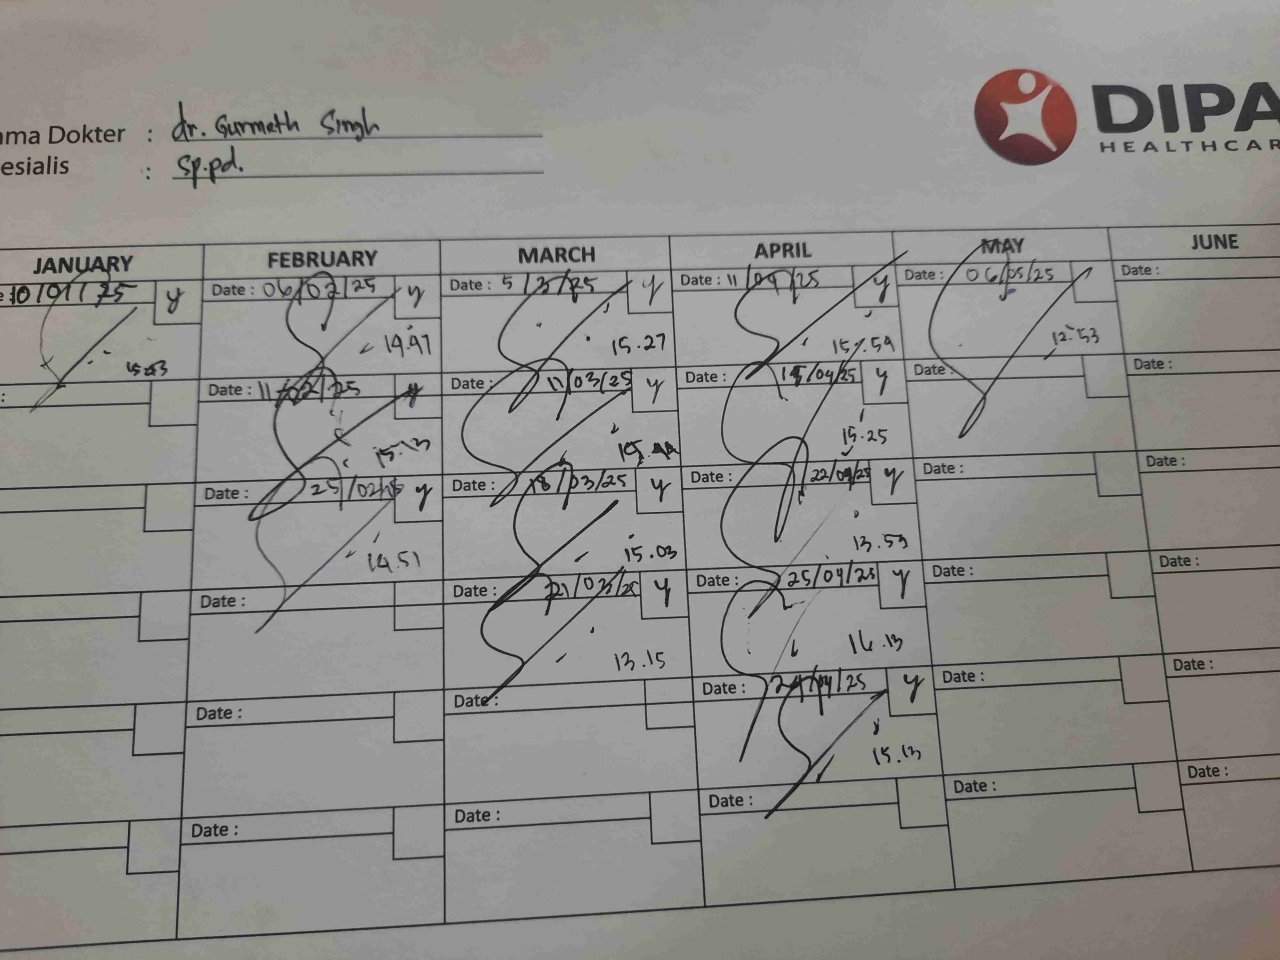 ama Dokter : dr. Gurmath Singh
esialis : Sp.pd.
DIPA
HEALTHCAR
JANUARY FEBRUARY MARCH APRIL MAY JUNE
10/01/25 y Date : 06/02/25 y Date : 5/3/25 y Date : 11/04/25 y Date : 06/05/25 Date :
15.03 14.47 15.27 15.59 12.53
: Date : 11/02/25 y Date : 11/03/25 y Date : 15/04/25 y Date : Date :
15.13 15.25
Date : 25/02/25 y Date : 18/03/25 y Date : 22/04/25 y Date : Date :
14.51 15.03 13.59
Date : Date : 21/03/25 y Date : 25/04/25 y Date : Date :
13.15 16.13
Date : Date : Date : 29/04/25 y Date : Date :
15.13
Date : Date : Date : Date : Date :